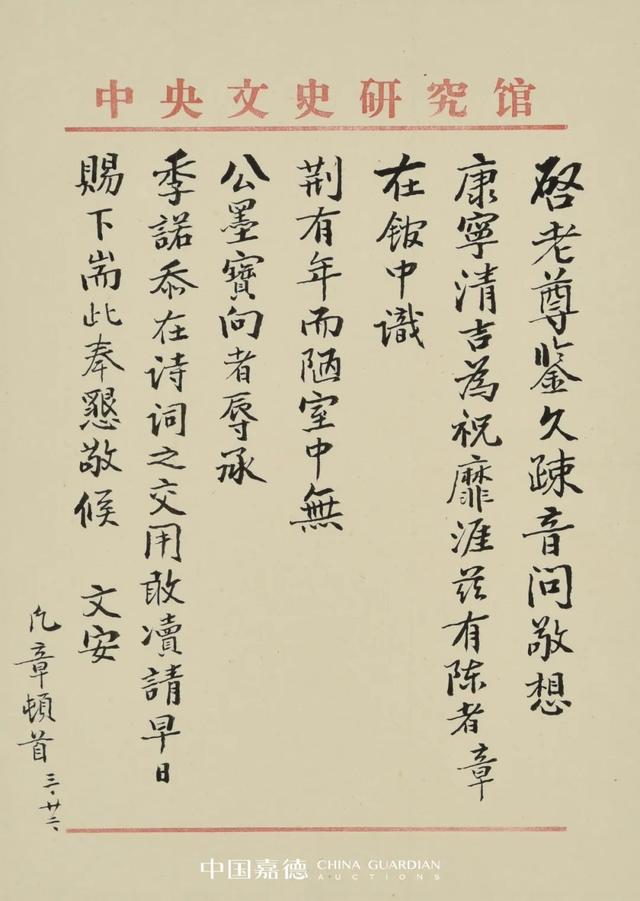 中央文史研究馆
啓老尊鉴久疎音问敬想
康寧清吉為祝靡涯兹有陈者章
在馆中識
荆有年而陋室中無
公墨寶向者辱承
季諾忝在诗词之交用敢凟請早日
賜下耑此奉懇敬候 文安
凡章頓首 三·廿二
中国嘉德 CHINA GUARDIAN
AUCTIONS